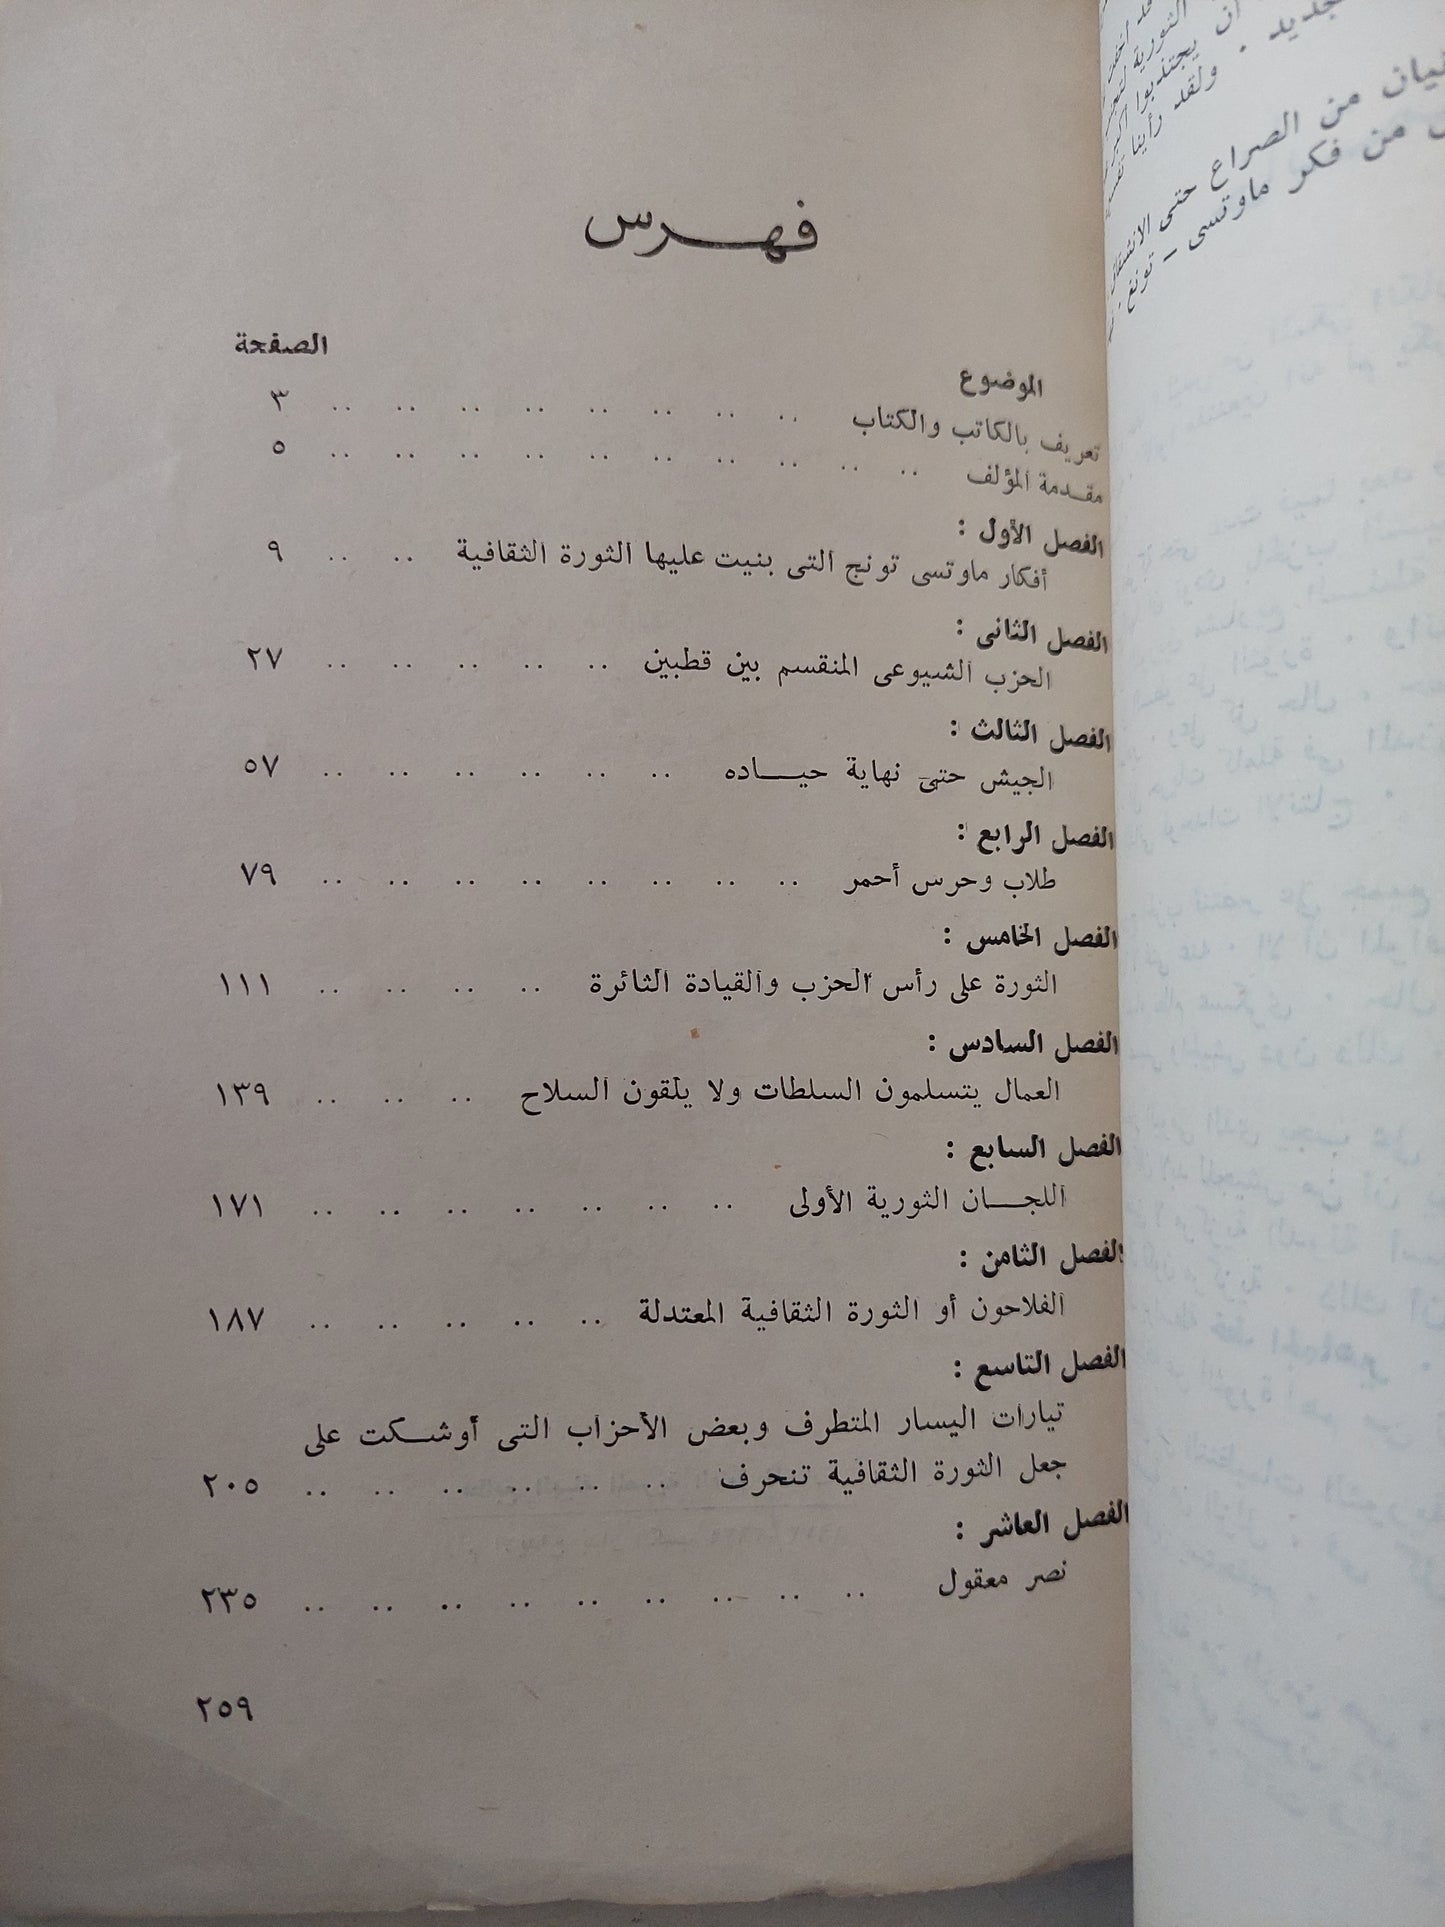 فهرس
الموضوع الصفحة
تعريف بالكاتب والكتاب .. .. .. .. .. .. .. .. ٣
مقدمة المؤلف .. .. .. .. .. .. .. .. .. .. ٥
الفصل الأول :
أفكار ماوتسى تونج التى بنيت عليها الثورة الثقافية .. .. ٩
الفصل الثانى :
الحزب الشيوعى المنقسم بين قطبين .. .. .. .. .. ٢٧
الفصل الثالث :
الجيش حتى نهاية حياده .. .. .. .. .. .. ٥٧
الفصل الرابع :
طلاب وحرس أحمر .. .. .. .. .. .. .. .. ٧٩
الفصل الخامس :
الثورة على رأس الحزب والقيادة الثائرة .. .. .. .. ١١١
الفصل السادس :
العمال يتسلمون السلطات ولا يلقون السلاح .. .. .. ١٣٩
الفصل السابع :
اللجان الثورية الأولى .. .. .. .. .. .. .. ١٧١
الفصل الثامن :
الفلاحون أو الثورة الثقافية المعتدلة .. .. .. .. .. ١٨٧
الفصل التاسع :
تيارات اليسار المتطرف وبعض الأحزاب التى أوشكت على
جعل الثورة الثقافية تنحرف .. .. .. .. .. .. ٢٠٥
الفصل العاشر :
نصر معقول .. .. .. .. .. .. .. .. .. ٢٣٥
٢٥٩
الثورية
أن يجتذبوا
جديد . ولقد رأينا
من الصراع حتى
من فكر ماوتسى - تونغ .